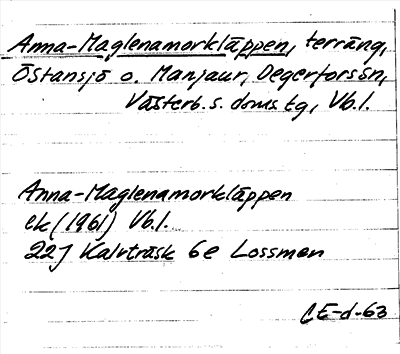 Anna-Maglenamorkläppen, terräng,
Östansjö o. Manjaur, Degerforssn,
Västerb. s. doms. tg, Vb.l.
Anna-Maglenamorkläppen
ek (1961) Vb.l.
22J Kalvträsk 6e Lossmen
CE-d-63